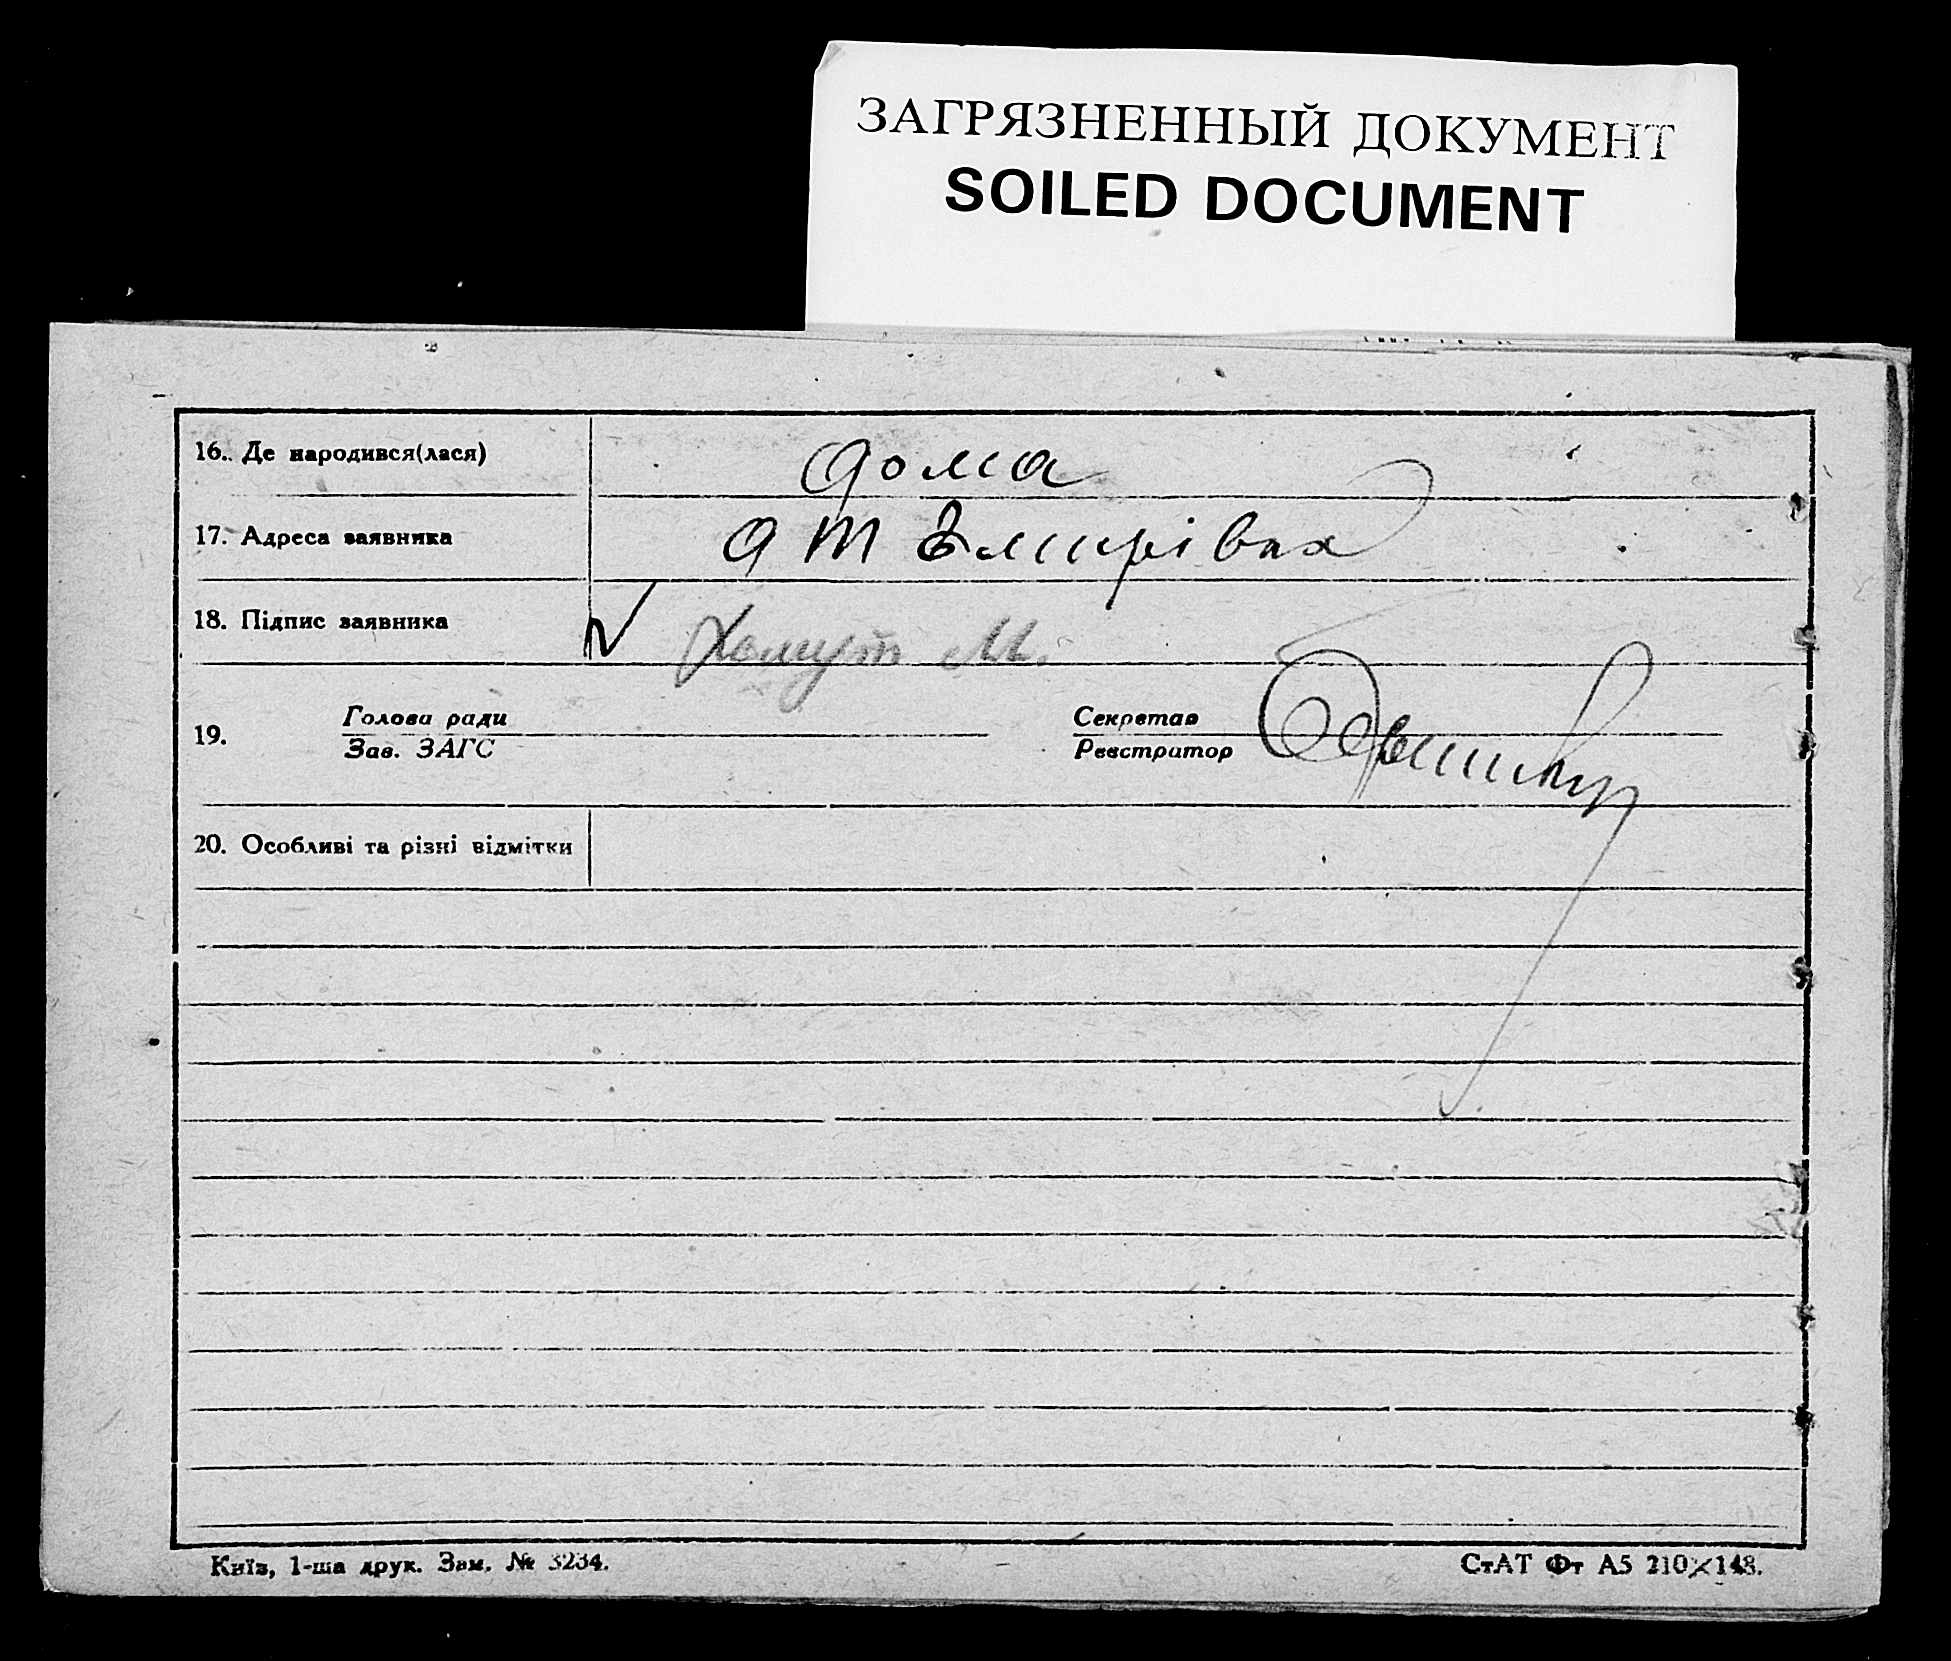 ЗАГРЯЗНЕННЫЙ ДОКУМЕНТ
SOILED DOCUMENT
16. Де народився(лася) дома
17. Адреса заявника
18. Підпис заявника Хомут М.
19. Голова ради Секретар
Зав. ЗАГС Реєстратор
20. Особливі та різні відмітки
Київ, 1-ша друк. Зам. № 3234.
СтАТ Фт А5 210×148.